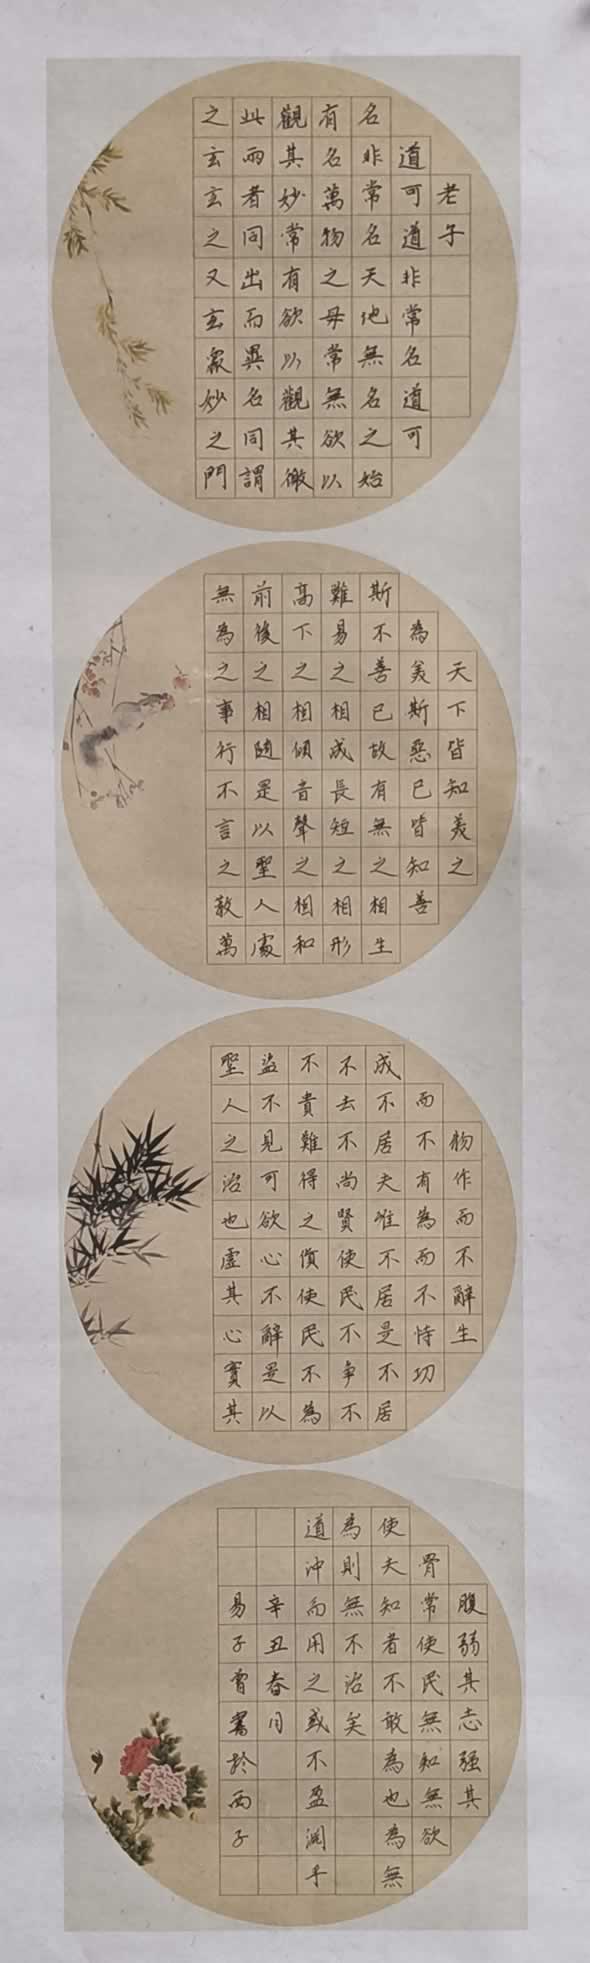 老子
道可道非常名道可
名非常名天地無名之始
有名萬物之母常無欲以
觀其妙常有欲以觀其徼
此兩者同出而異名同謂
之玄玄之又玄衆妙之門
天下皆知美之
為美斯惡已皆知善
斯不善已故有無之相生
難易之相成長短之相形
高下之相傾音聲之相和
前後之相隨是以聖人處
無為之事行不言之教萬
物作而不辭生
而不有為而不恃功
成不居夫唯不居是不居
不去不尚賢使民不争不
不貴難得之貨使民不為
盜不見可欲心不辭是以
聖人之治也虛其心實其
腹弱其志强其
骨常使民無知無欲
使夫知者不敢為也為無
為則無不治矣
道沖而用之或不盈淵乎
辛丑春月
易子曾書於西子